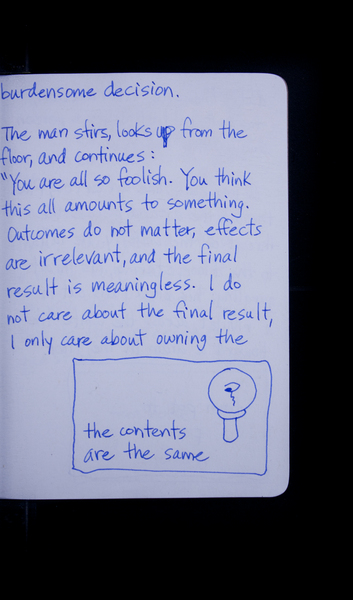 burdensome decision.
The man stirs, looks up from the
floor, and continues:
"You are all so foolish. You think
this all amounts to something.
Outcomes do not matter, effects
are irrelevant, and the final
result is meaningless. I do
not care about the final result,
I only care about owning the
the contents
are the same